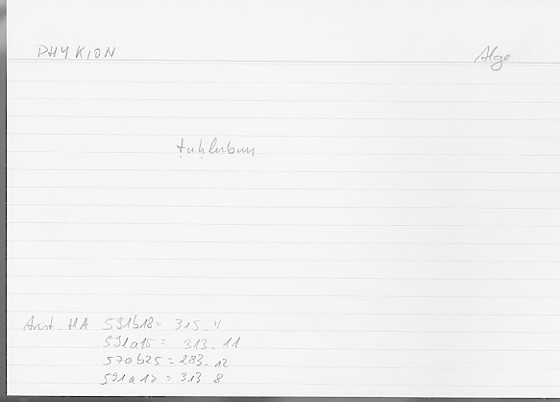 PHYKION Alge
ṭuḥlubun
Arist. HA 591b18 = 315.4
591a15 = 313.11
570b25 = 283.12
591a12 = 313 8